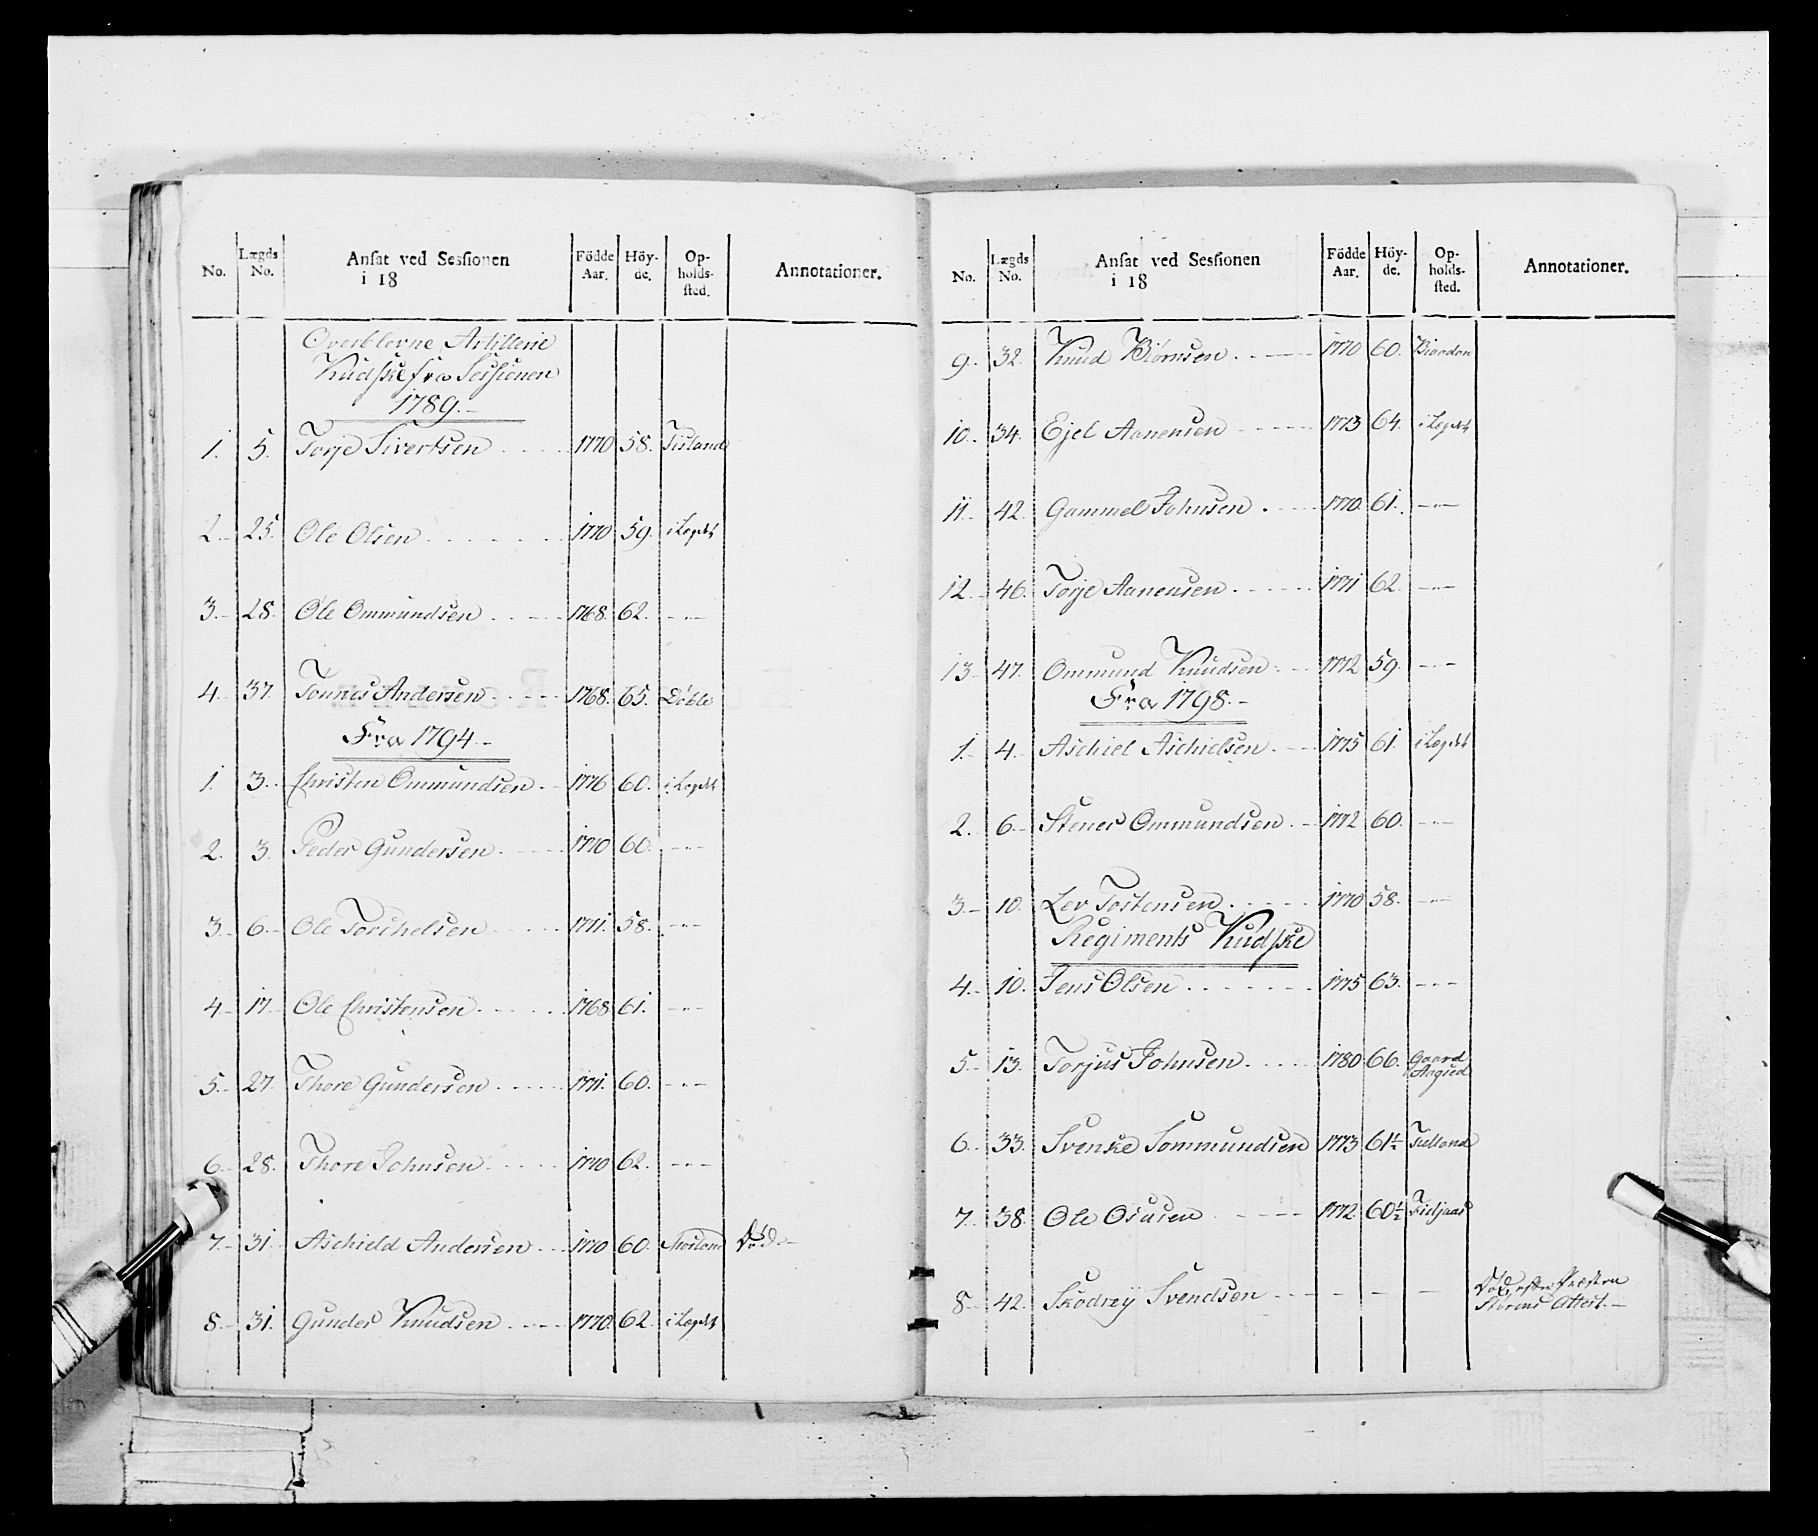 No. Lægds No. Ansat ved Sessionen i 18 Födde Aar. Höy-de. Op-holds-sted. Annotationer.
Overblevne Artillerie
Kudske fra Sessionen
1789.-
1. 5. Torje Sivertsen 1770 58.
2. 25. Ole Olsen 1770 59. i Legdet
3. 28. Ole Ommundsen 1768. 62. -"-
4. 37. Tønnes Andersen 1768. 65. Døble
Fra 1794.-
1. 3. Christen Ommundsen 1776 60. i Legdet
2. 3. Peder Gundersen 1770 60. -"-
3. 6. Ole Torchelsen 1771. 58. -"-
4. 17. Ole Christensen 1768 61. -"-
5. 27. Thore Gundersen 1771. 60. -"-
6. 28. Thore Johnsen 1770 62. -"-
7. 31. Aschield Andersen 1770 60. Død.-
8. 31. Gunder Knudsen 1770. 62. i Legdet
No. Lægds No. Ansat ved Sessionen i 18 Födde Aar. Höy-de. Op-holds-sted. Annotationer.
9. 32. Knud Biørnsen 1770 60.
10. 34. Ejel Aanensen 1773 64. i Legdet
11. 42. Gammel Johnsen 1770. 61. -"-
12. 46. Torje Aanensen 1771 62. -"-
13. 47. Ommund Knudsen 1772 59. -"-
Fra 1798.-
1. 4. Aschiel Aschielsen 1775 61. i Legdet
2. 6. Stener Ommundsen 1772 60. -"-
3. 10. Lev Tostensen 1770 58. -"-
Regiments Kudske
4. 10. Jens Olsen 1775 63. -"-
5. 13. Torjus Johnsen 1780 66. Gaard
6. 33. Svenke Sommundsen 1773 61½
7. 38. Ole Osusen 1772 60½
8. 42. Svendsen - - - Død efter Præsten
Attest.-